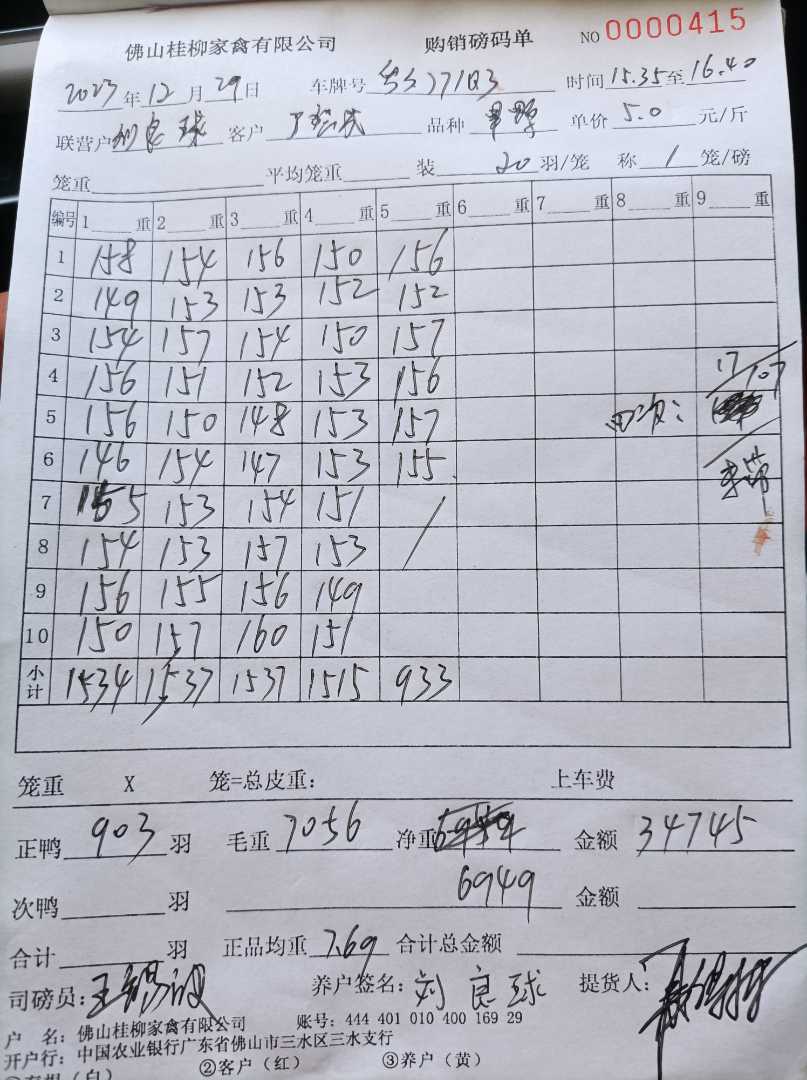 佛山桂柳家禽有限公司 购销磅码单 NO 0000415
2023年12月29日 车牌号 时间15.35至16.40
联营户刘良球 客户 品种 单价5.0元/斤
笼重 平均笼重 装20羽/笼 称1笼/磅
编号 1 重 2 重 3 重 4 重 5 重 6 重 7 重 8 重 9 重
1 158 154 156 150 156
2 149 153 153 152 152
3 154 157 154 150 157
4 156 151 152 153 156 17/107
5 156 150 148 153 157
6 146 154 147 153 155
7 155 153 154 151
8 154 153 157 153 /
9 156 155 156 149
10 150 157 160 151
小计 1534 1537 1537 1515 933
笼重 X 笼=总皮重: 上车费
正鸭903羽 毛重7056 净重 金额34745
次鸭 羽 6949 金额
合计 羽 正品均重7.69 合计总金额
司磅员: 养户签名:刘良球 提货人:
户 名:佛山桂柳家禽有限公司 账号:444 401 010 400 169 29
开户行:中国农业银行广东省佛山市三水区三水支行
②客户(红) ③养户(黄)